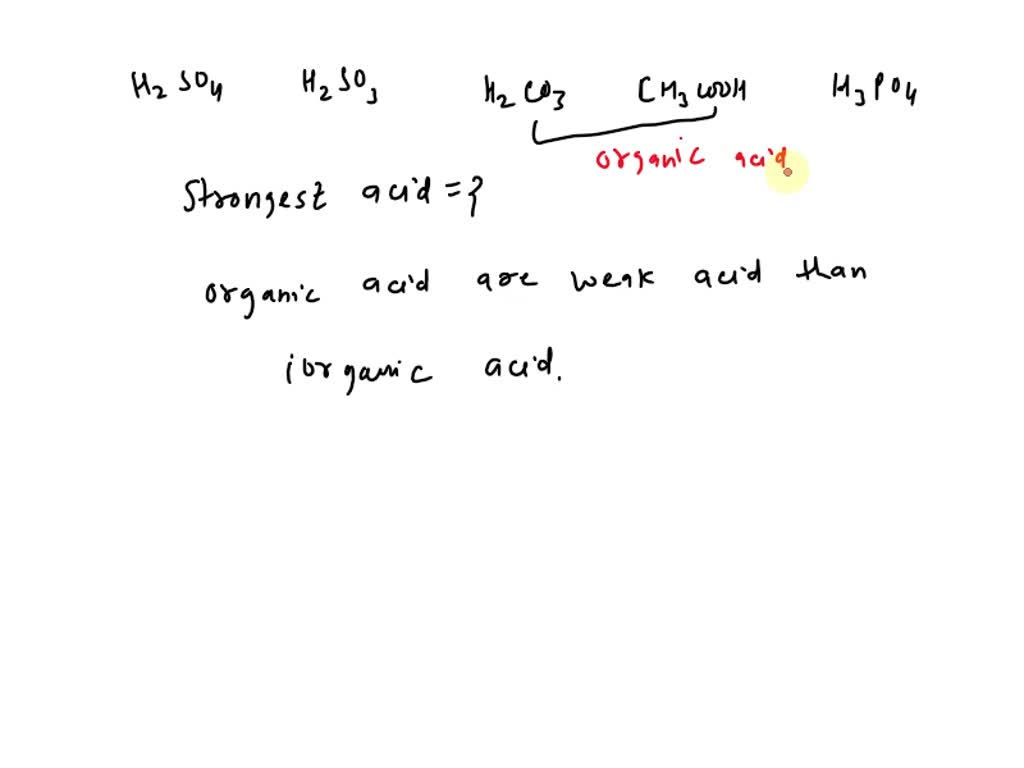 H2SO4 H2SO3 H2CO3 CH3COOH H3PO4
organic acid
Strongest acid = ?
organic acid are weak acid than
iorganic acid.